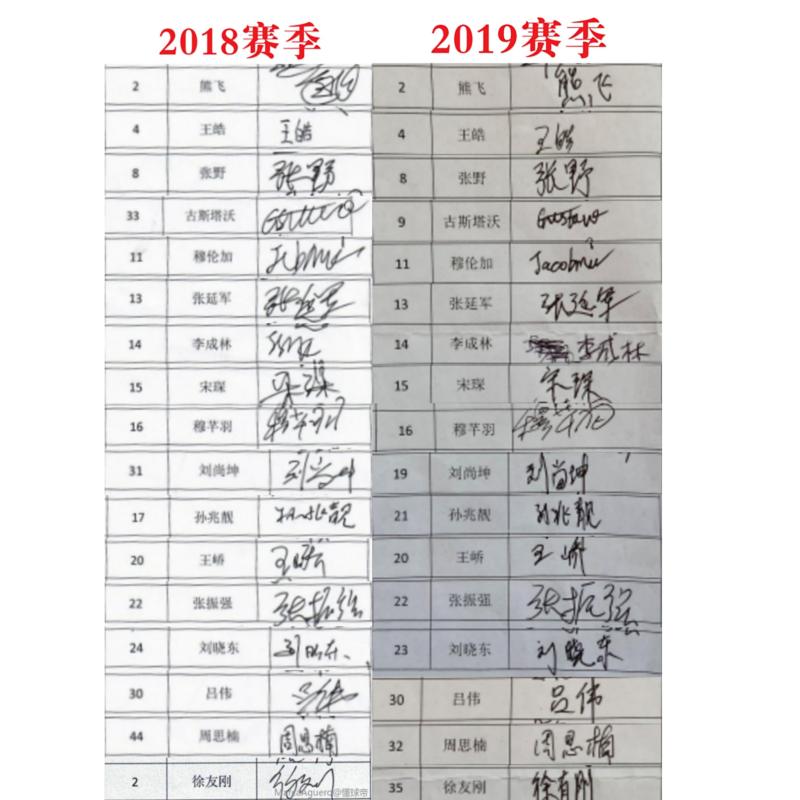 2018赛季 2019赛季
2 熊飞 2 熊飞 熊飞
4 王皓 王皓 4 王皓 王皓
8 张野 张野 8 张野 张野
33 古斯塔沃 9 古斯塔沃 Gustavo
11 穆伦加 11 穆伦加
13 张延军 张延军 13 张延军 张延军
14 李成林 14 李成林 李成林
15 宋琛 宋琛 15 宋琛 宋琛
16 穆芊羽 16 穆芊羽
31 刘尚坤 刘尚坤 19 刘尚坤 刘尚坤
17 孙兆靓 孙兆靓 21 孙兆靓 孙兆靓
20 王峤 20 王峤 王峤
22 张振强 张振强 22 张振强 张振强
24 刘晓东 刘晓东 23 刘晓东 刘晓东
30 吕伟 吕伟 30 吕伟 吕伟
44 周思楠 周思楠 32 周思楠 周思楠
2 徐友刚 35 徐友刚 徐友刚
@懂球帝